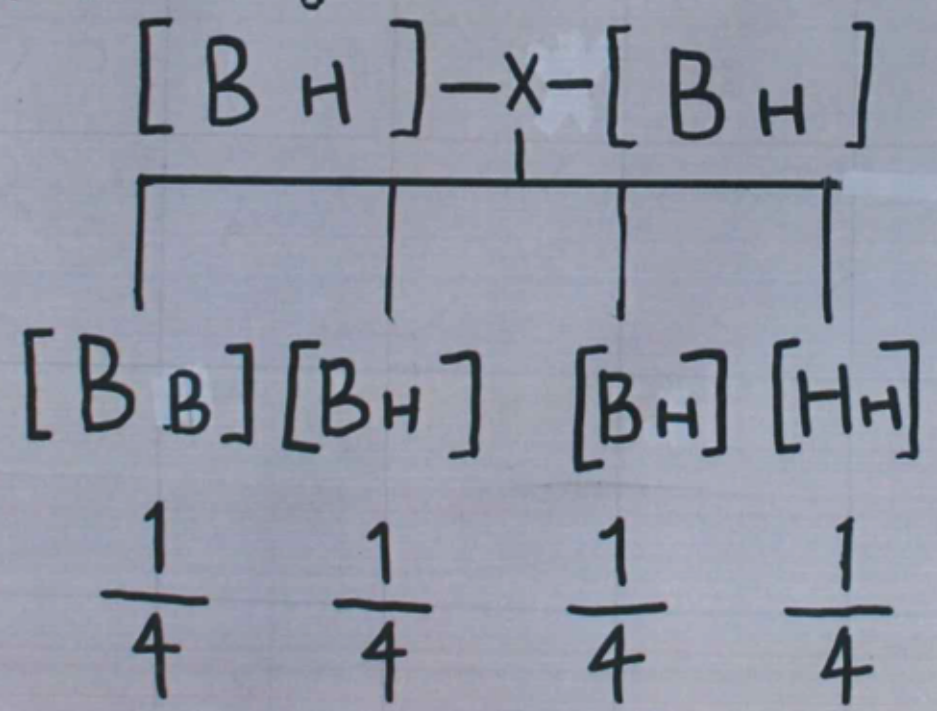 [ B H ] - X - [ B H ]
[ B B ] [ B H ] [ B H ] [ H H ]
1/4 1/4 1/4 1/4